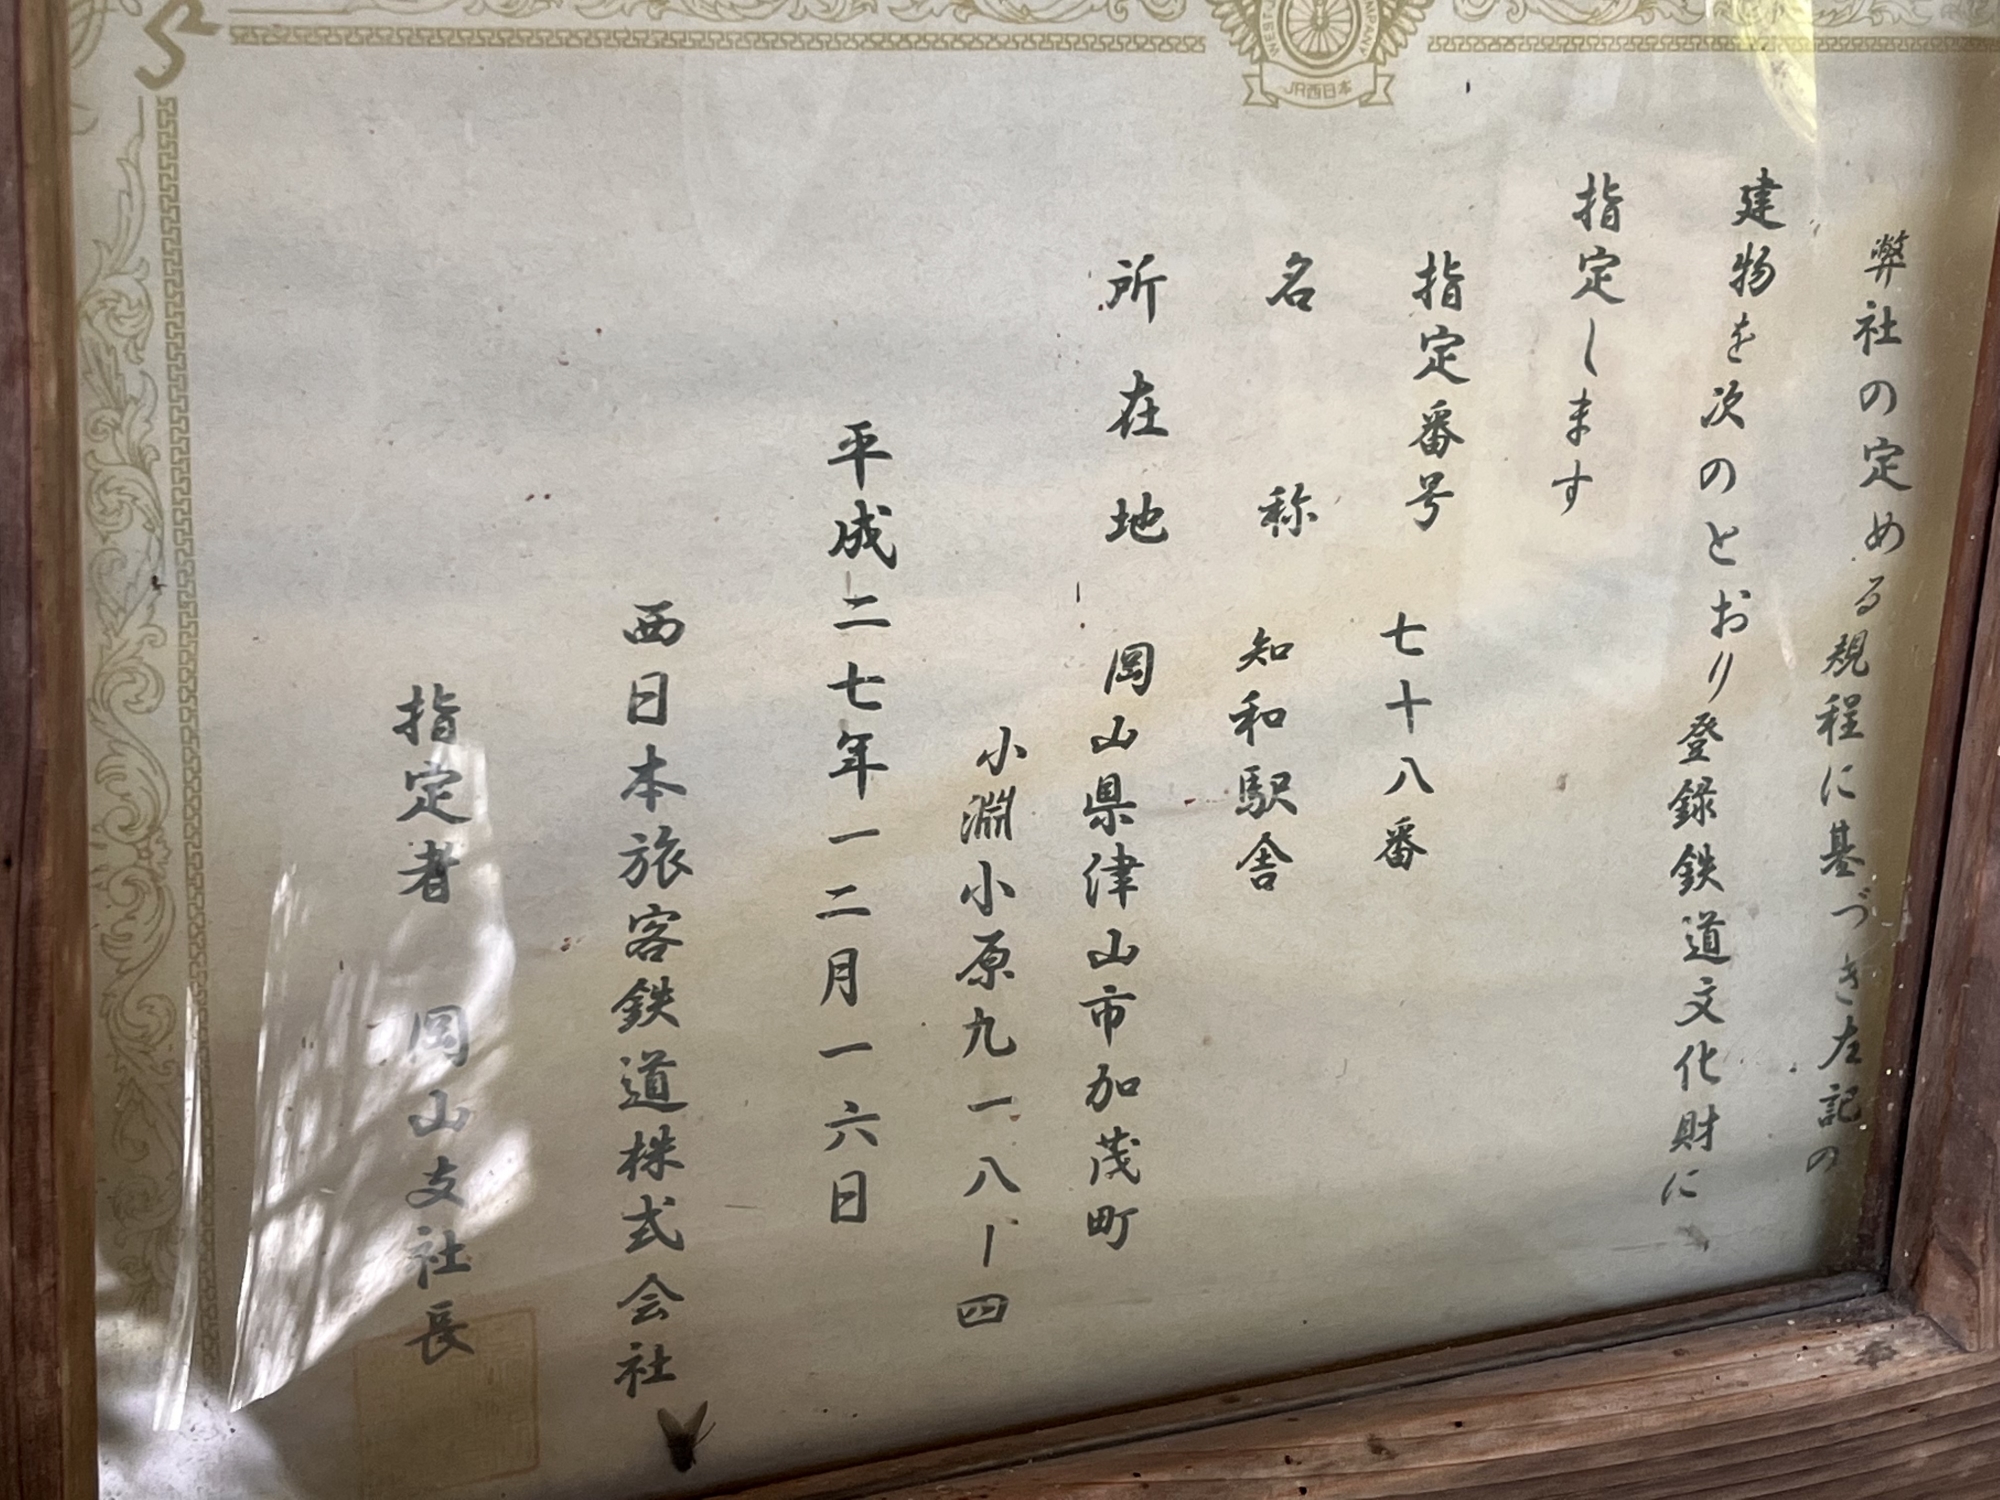 JR西日本
弊社の定める規程に基づき左記の
建物を次のとおり登録鉄道文化財に
指定します
指定番号 七十八番
名称 知和駅舎
所在地 岡山県津山市加茂町
小淵小原九一八ー四
平成二七年一二月一六日
西日本旅客鉄道株式会社
指定者 岡山支社長